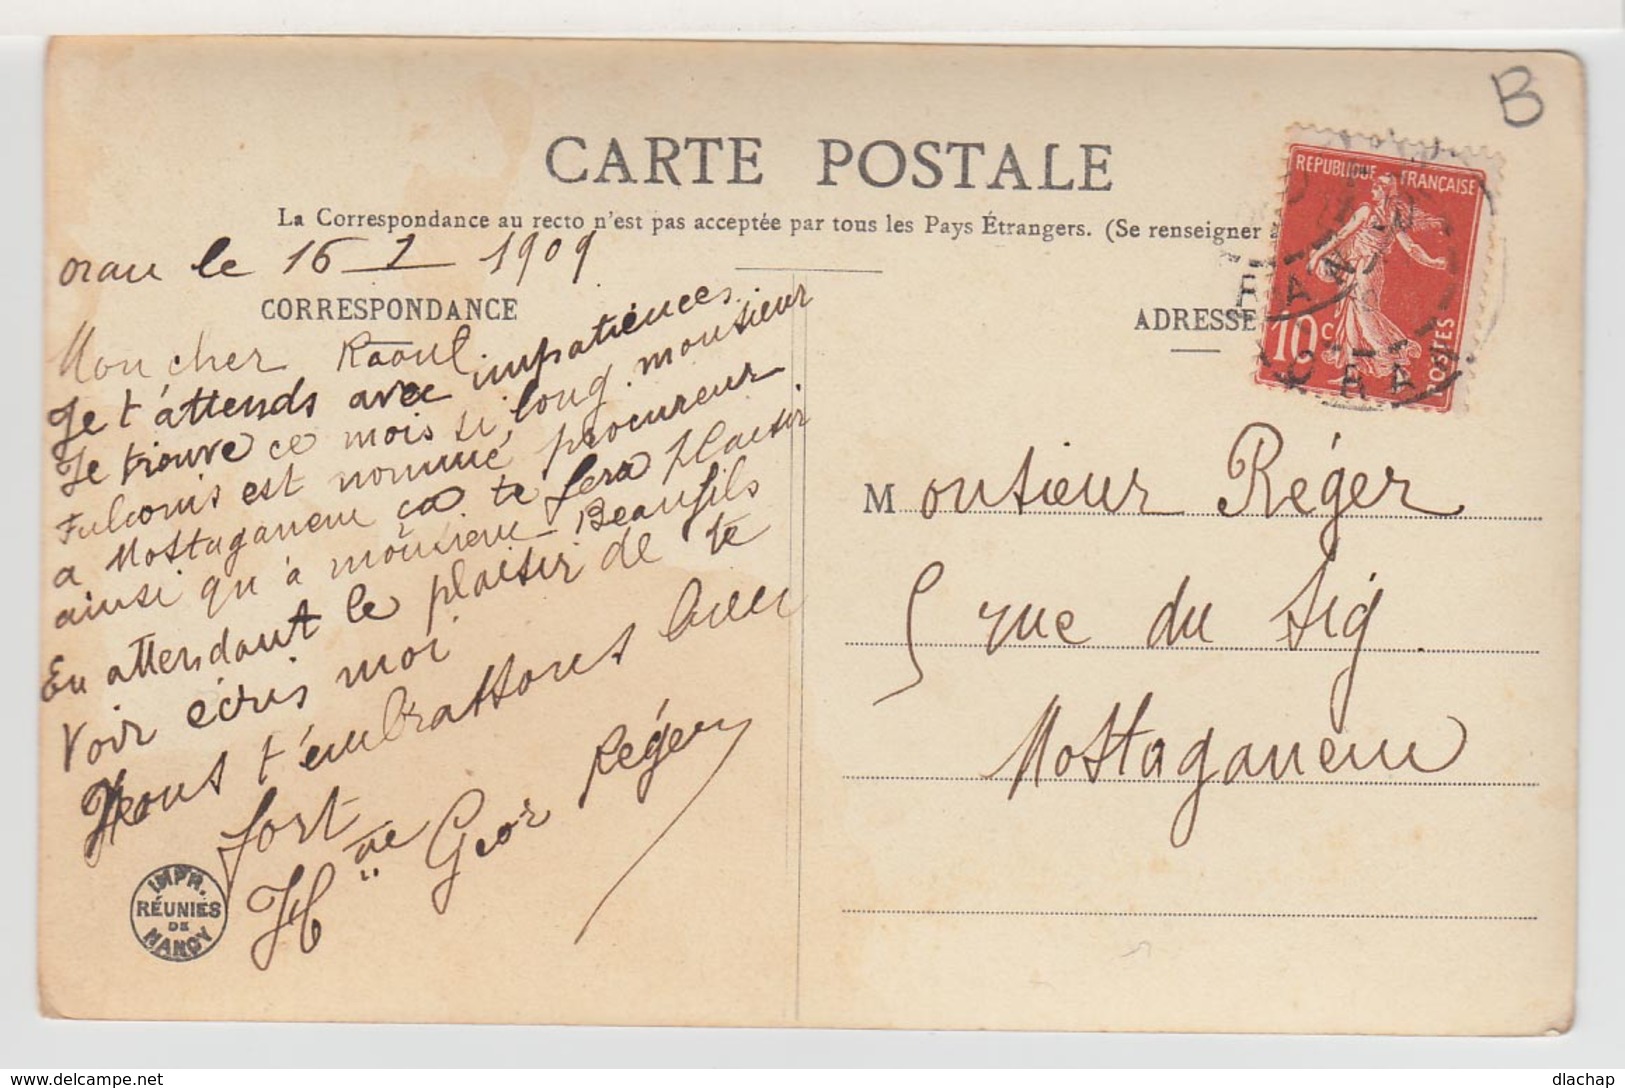 B
CARTE POSTALE
La Correspondance au recto n'est pas acceptée par tous les Pays Étrangers. (Se renseigner à
REPUBLIQUE FRANÇAISE
10 c.
POSTES
ORAN
ORAN
oran le 16 _ 1 _ 1909
CORRESPONDANCE
Mon cher Raoul
Je t'attends avec impatiences
Je trouve ce mois si long. monsieur
Fulconis est nommé procureur
a Mostaganem ça te fera plaisir
ainsi qu'à monsieur Beaufils
En attendant le plaisir de te
Voir écris moi
Nous t'embrassons bien
fort
Hne Geor Réger
IMPR.
RÉUNIES
DE
NANCY
ADRESSE
Monsieur Réger
5 rue du Sig
Mostaganem
delcampe.net
dlachap